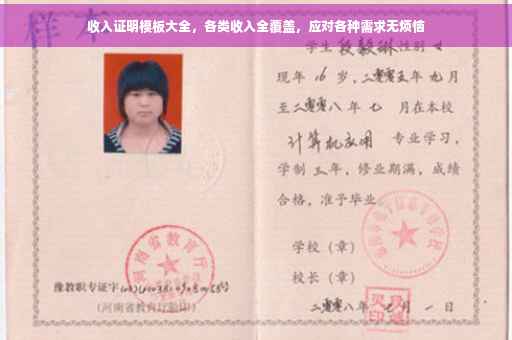 收入证明模板大全，各类收入全覆盖，应对各种需求无烦恼
样本
学生段毅琳性别女
现年16岁，二零零五年九月
至二零零八年七月在本校
计算机应用 专业学习，
学制三年，修业期满，成绩
合格，准予毕业。
学校（章）
校长（章）
二零零八年七月一日
河南省教育厅
豫教职专证字
（河南省教育厅验印）